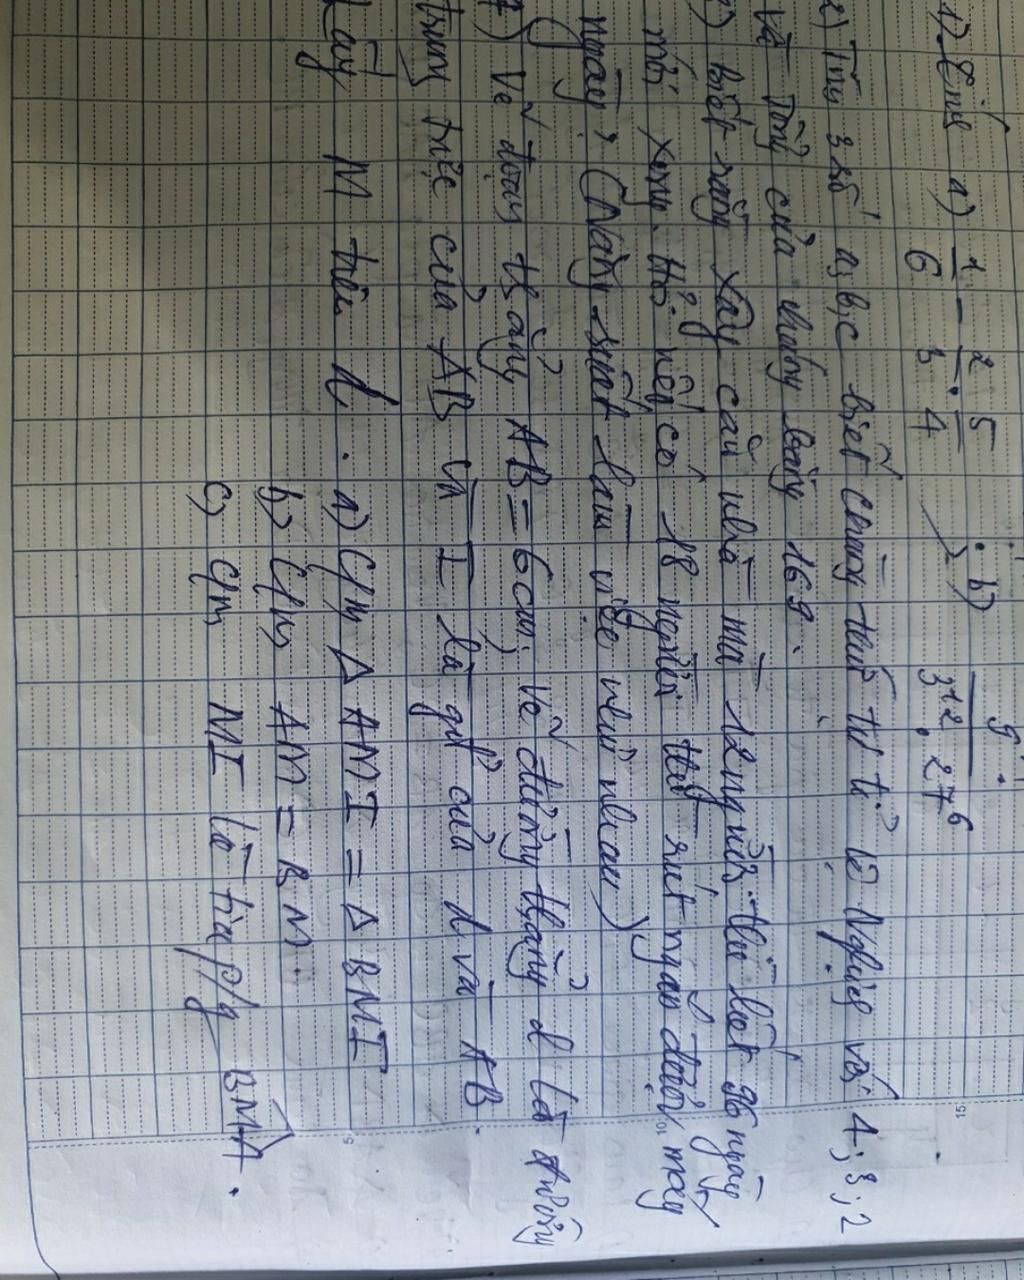 1) Tính a) 1/6 - 2/3 . 5/4 b) 9/(3^12 . 27^6)
2) Tìm 3 số a, b, c biết chúng tỉ lệ nghịch với 4; 3; 2
và tổng của chúng bằng 169.
3) biết rằng xây căn nhà mà 12 người thì hết 96 ngày
mới xong. Hỏi nếu có 18 người thì rút ngắn được mấy
ngày? (Năng suất làm việc như nhau)
4) Vẽ đoạn thẳng AB = 6cm, vẽ đường thẳng d là đường
trung trực của AB và I là gđ của d và AB.
Lấy M trên d. a) C/m Δ AMI = Δ BMI
b) C/m AM = BM
c) C/m MI là tia p/g BMA.
15
5